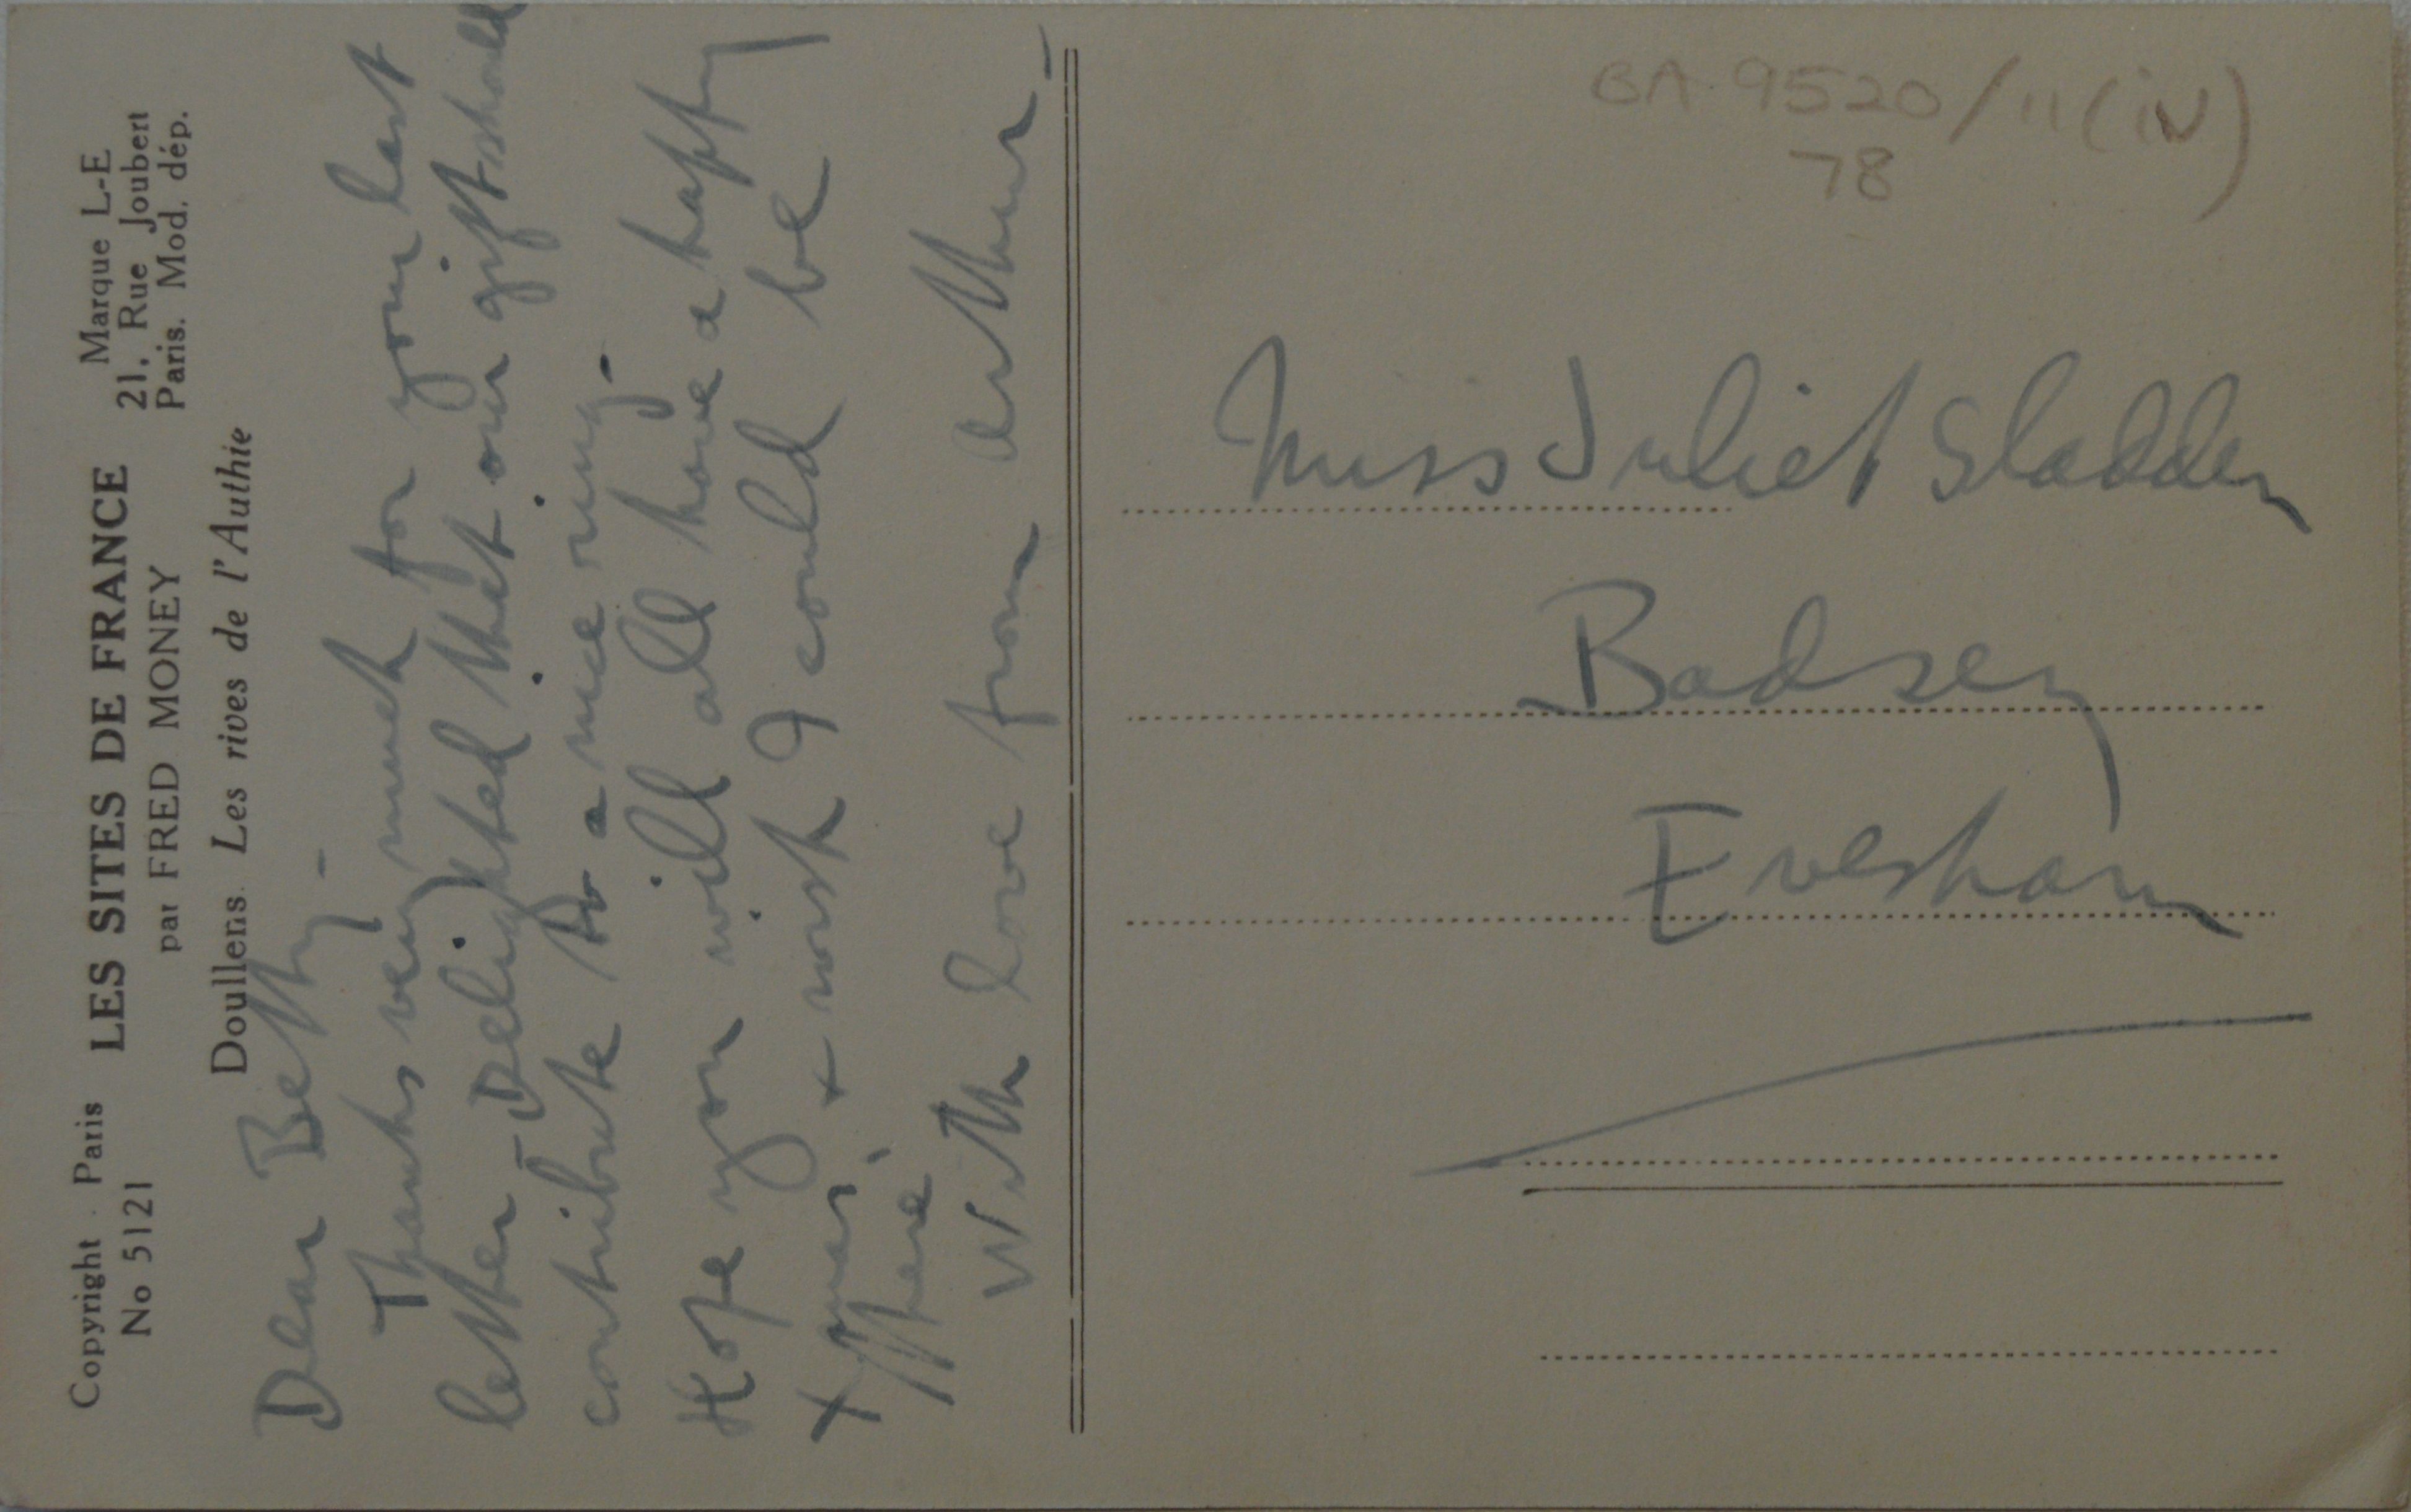 Copyright. Paris
No 5121
LES SITES DE FRANCE
par FRED MONEY
Marque L-E
21, Rue Joubert
Paris. Mod. dép.
Doullens. Les rives de l'Authie
Dear Betty -
Thanks very much for your last
letter - Delighted that our gift should
contribute to a nice ring -
Hope you will all have a happy
Xmas, & wish I could be
there
With love from Arthur -
BA 9520/11(iv)
78
Miss Juliet Sladden
Badsey
Evesham